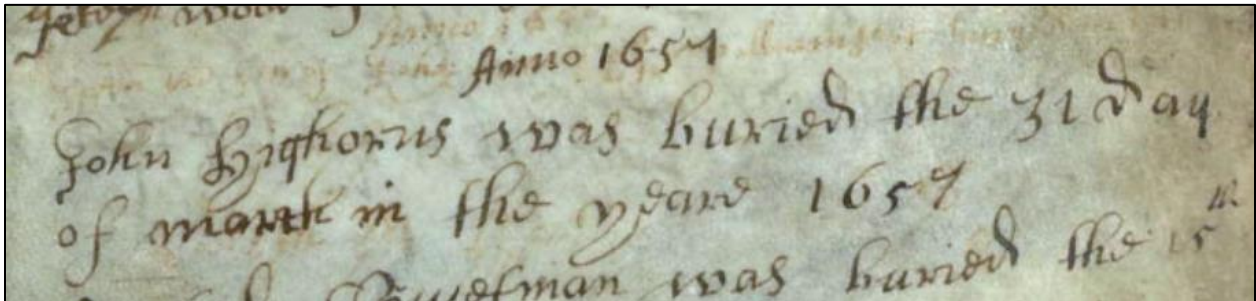 Anno 1657
John Highorns was buried the 31 day
of march in the yeare 1657
was buried the 15